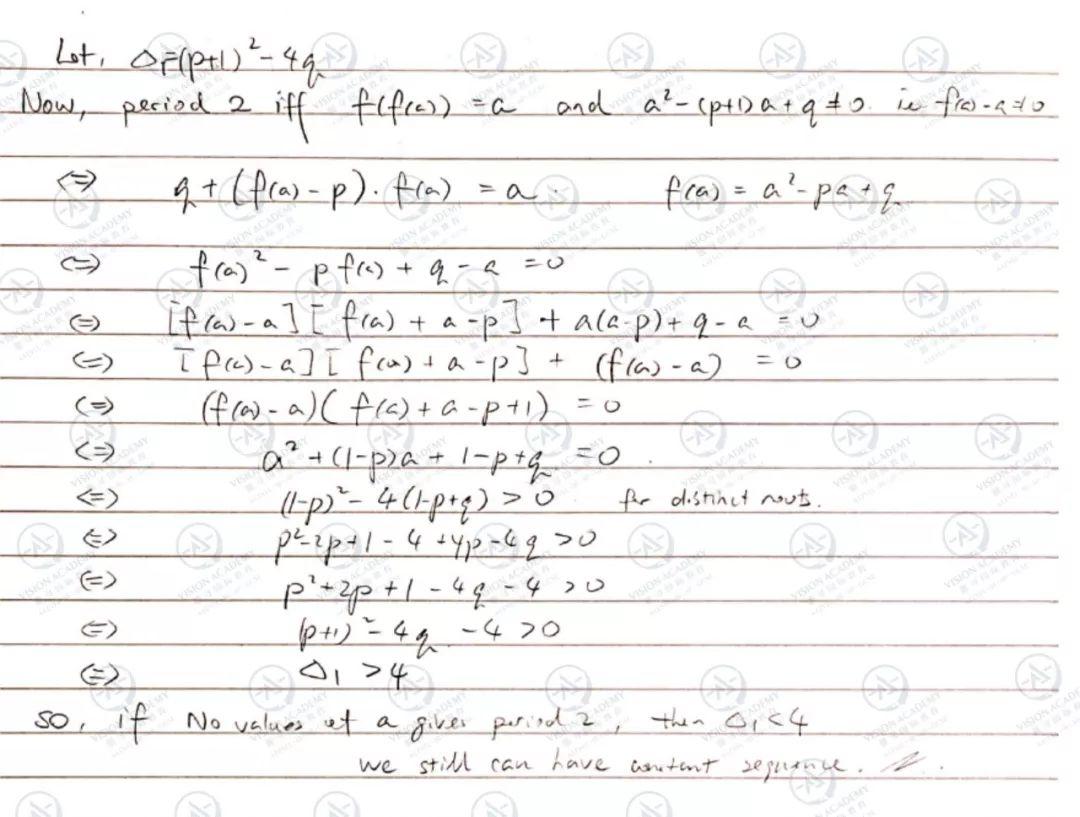 Let, Δ₁=(p+1)² - 4q
Now, period 2 iff f(f(a)) = a and a² - (p+1)a + q ≠ 0. ie f(a) - a ≠ 0
⇔ q + (f(a) - p) · f(a) = a. f(a) = a² - pa + q
⇔ f(a)² - p f(a) + q - a = 0
⇔ [f(a) - a][f(a) + a - p] + a(a-p) + q - a = 0
⇔ [f(a) - a][f(a) + a - p] + (f(a) - a) = 0
⇔ (f(a) - a)(f(a) + a - p + 1) = 0
⇔ a² + (1-p)a + 1 - p + q = 0.
⇔ (1-p)² - 4(1-p+q) > 0 for distinct roots.
⇔ p² - 2p + 1 - 4 + 4p - 4q > 0
⇔ p² + 2p + 1 - 4q - 4 > 0
⇔ (p+1)² - 4q - 4 > 0
⇔ Δ₁ > 4
SO, if No values of a gives period 2, then Δ₁ < 4
we still can have constant sequence.
VISION ACADEMY